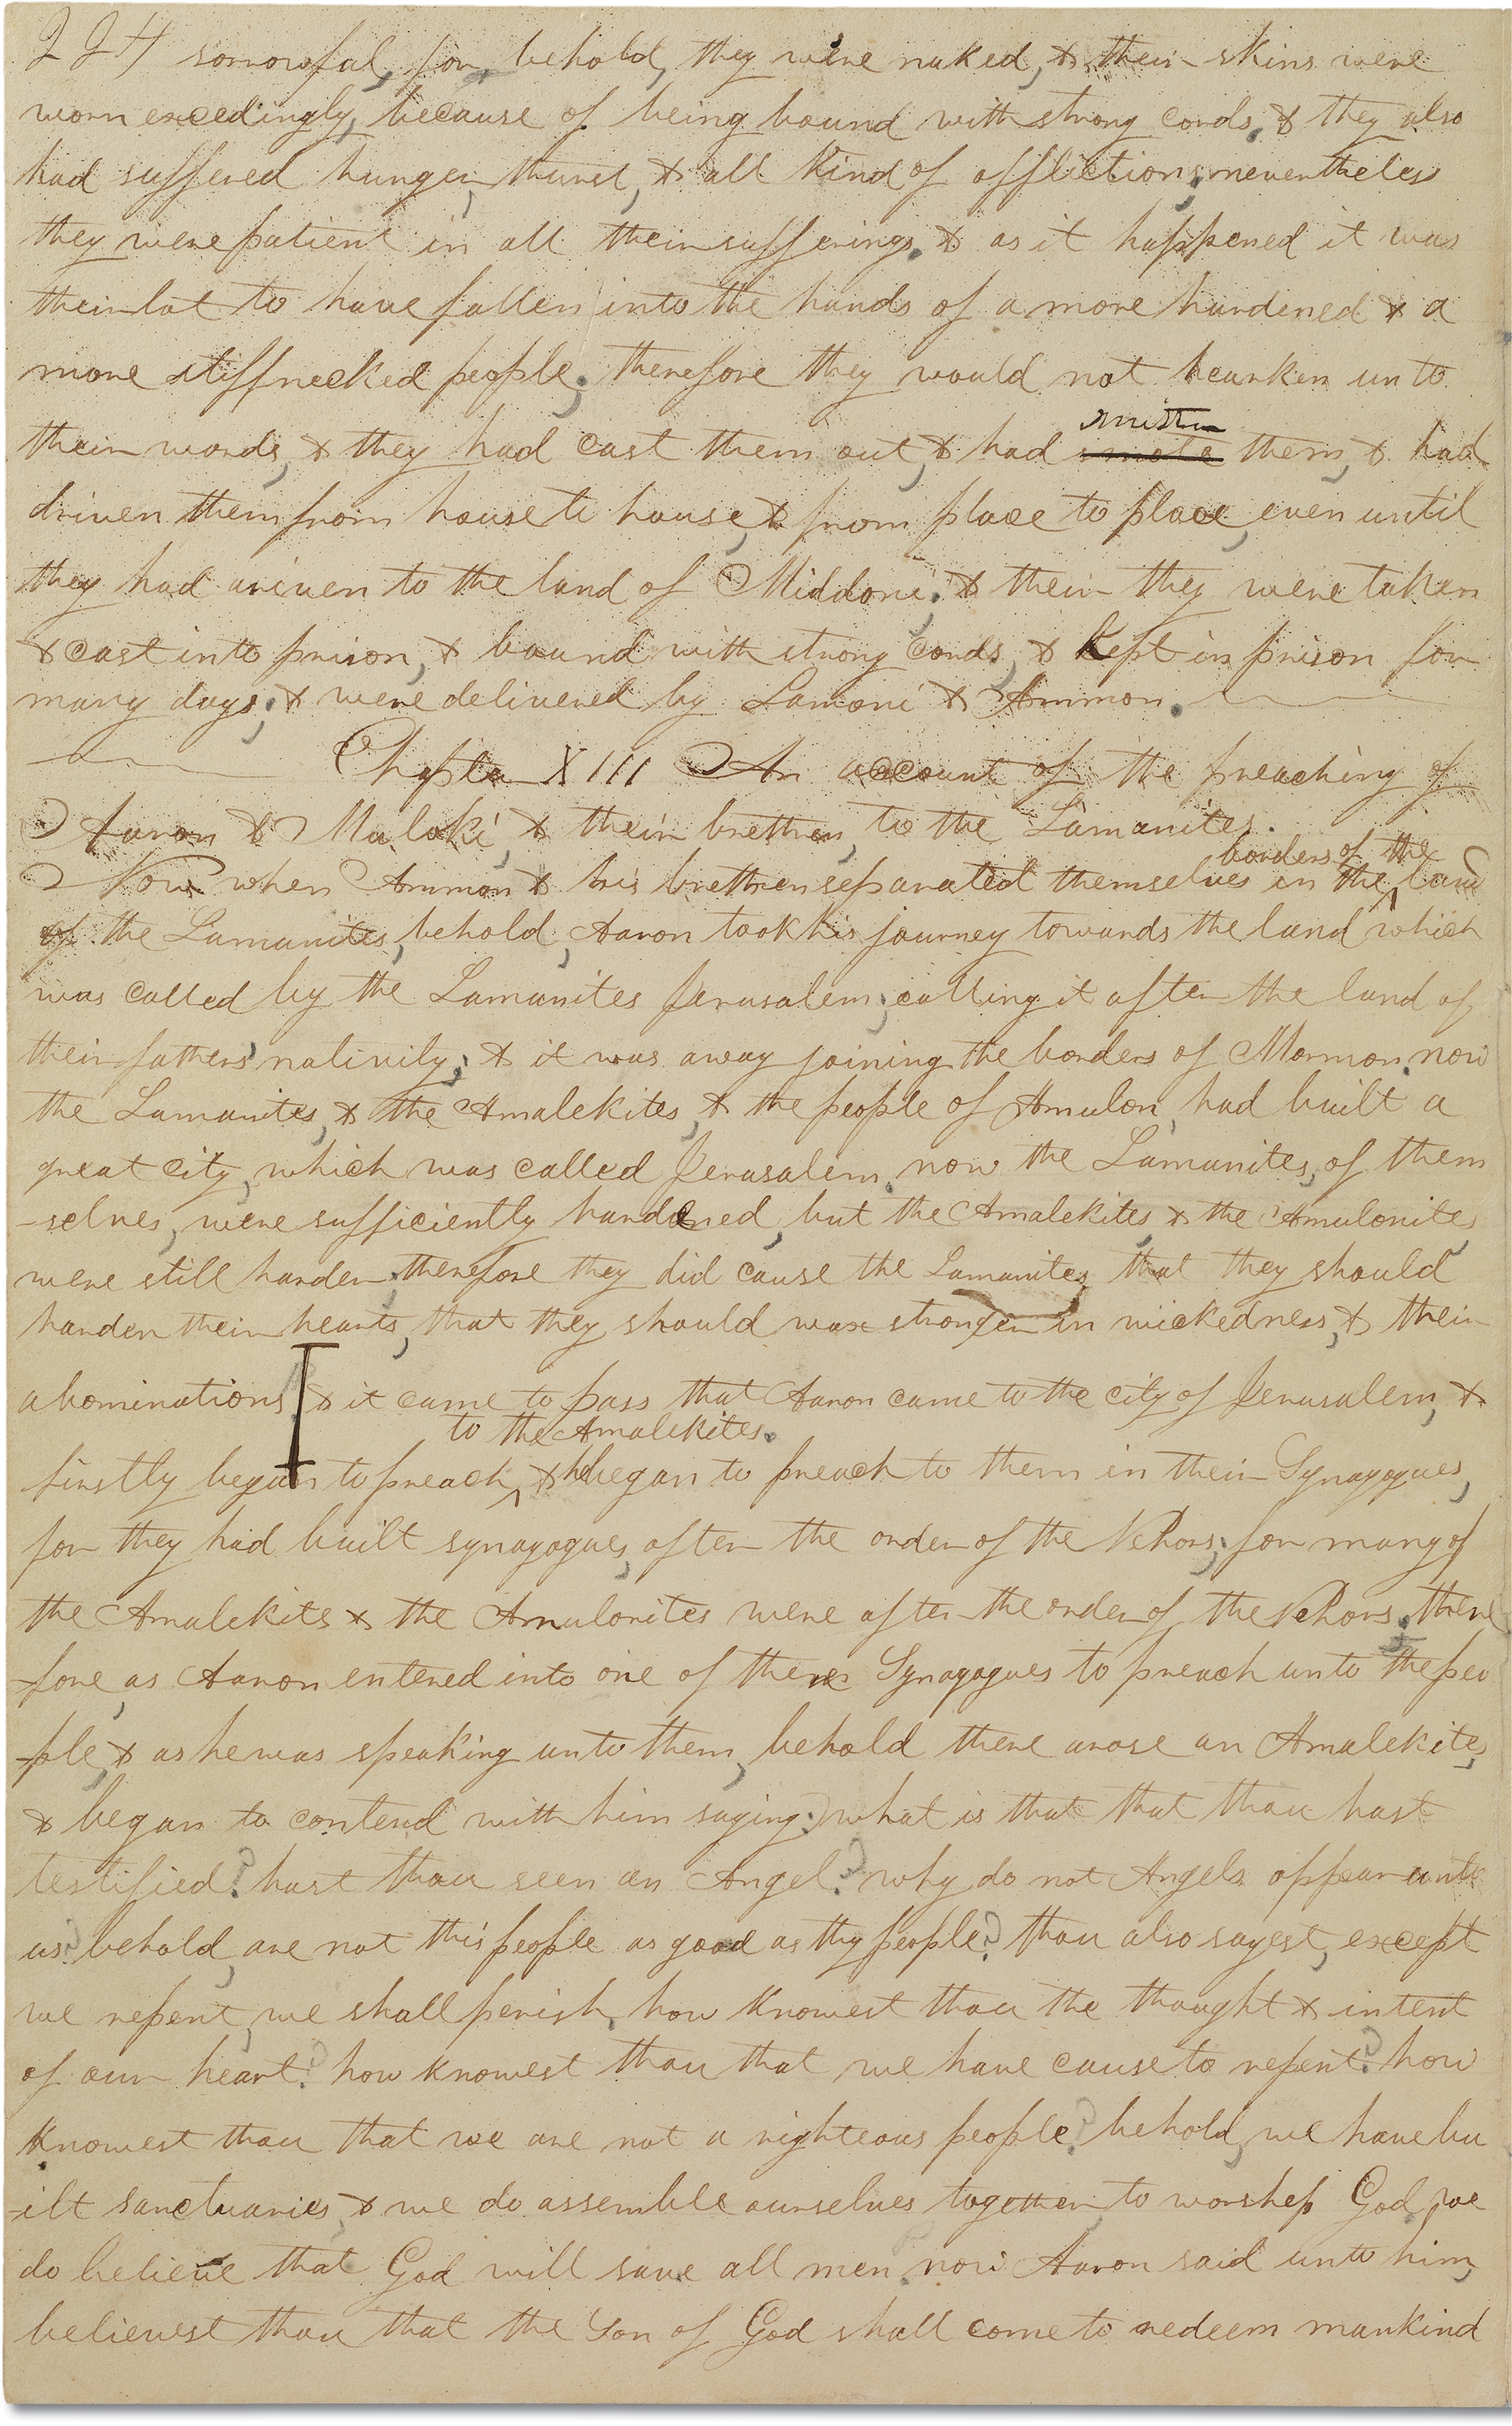 224 sorrowful, for behold, they were naked, & their skins were
worn excedingly, because of being bound with strong cords, & they also
had suffered hunger, thurst, & all kind of afflictions, nevertheless
they were patient in all their sufferings. & as it happened it was
their lot to have fallen into the hands of a more hardened & a
more stiffnecked people; therefore they would not hearken unto
smitten
their words, & they had cast them out, & had smote them, & had
driven them from house to house, & from place to place, even until
they had ariven to the land of Middoni; & their they were taken
& cast into prison, & bound with strong cords, & kept in prison for
many days; & were delivered by Lamoni & Ammon.
Chapter XIII An account of the preaching of
Aaron & Muloki, & their brethren, to the Lamanites.
borders of the
Now when Ammon & his brethren separated themselves in the ^ land
of the Lamanites, behold, Aaron took his journey towards the land which
was called by the Lamanites Jerusalem; calling it after the land of
their fathers' nativity; & it was away joining the borders of Mormon. now
the Lamanites, & the Amalekites, & the people of Amulon, had built a
great city, which was called Jerusalem. now the Lamanites, of them
-selves, were sufficiently hardened, but the Amalekites & the Amulonites,
were still harder; therefore they did cause the Lamanites, that they should
harden their hearts, that they should wax stronger in wickedness, & their
abominations & it came to pass that Aaron came to the city of Jerusalem, &
to the Amalekites.
firstly began to preach ^ & he began to preach to them in their Synagogues,
for they had built synagogues, after the order of the Nehors; for many of
the Amalekites & the Amulonites were after the order of the Nehors. there
fore, as Aaron entered into one of there Synagogues to preach unto the peo
-ple, & as he was speaking unto them, behold there arose an Amalekite,
& began to contend with him saying: what is that that thou hast
testified? hast thou seen an Angel? why do not Angels appear unto
us? behold, are not this people as good as thy people? thou also sayest, except
we repent, we shall perish, how knowest thou the thought & intent
of our heart? how knowest thou that we have cause to repent? how
knowest thou that we are not a righteous people? behold, we have bu
-ilt sanctuaries, & we do assemble ourselves together, to worship God, we
do believe that God will save all men. now Aaron said unto him,
believest thou that the Son of God shall come to redeem mankind